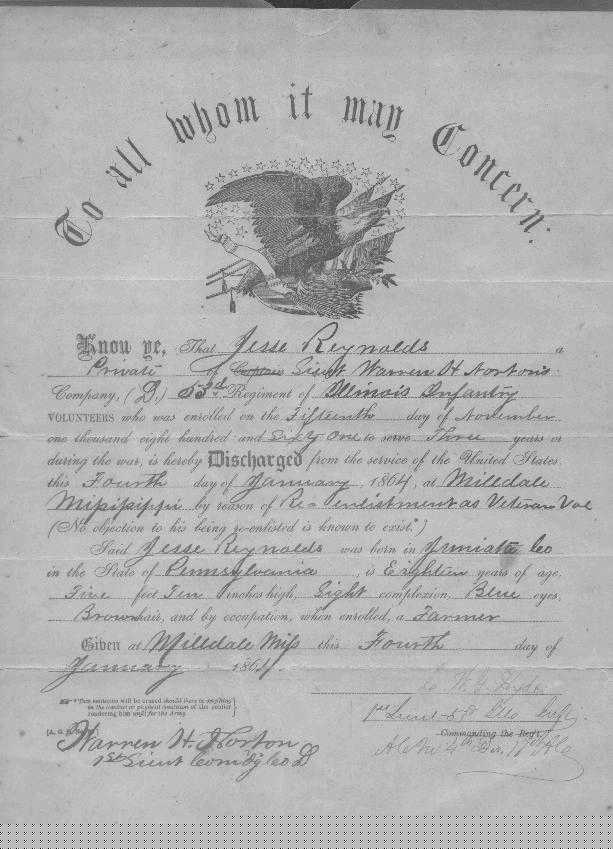 To all whom it may Concern:
Know ye, That Jesse Reynolds a
Private of Captain Lieut Warren H Norton's
Company, (D,) 53rd Regiment of Illinois Infantry
VOLUNTEERS who was enrolled on the Fifteenth day of November
one thousand eight hundred and Sixty One to serve Three years or
during the war, is hereby Discharged from the service of the United States,
this Fourth day of January, 1864, at Milldale
Missippippi by reason of Re-enlistment as Veteran Vol
(No objection to his being re-enlisted is known to exist.*)
Said Jesse Reynolds was born in Juniatta Co
in the State of Pennsylvania, is Eighteen years of age,
Five feet Ten inches high, Light complexion, Blue eyes,
Brown hair, and by occupation, when enrolled, a Farmer
Given at Milldale Miss this Fourth day of
January 1864.
*This sentence will be erased should there be anything
in the conduct or physical condition of the soldier
rendering him unfit for the Army.
1st Lieut 58 Ills Infy
Commanding the Reg't.
[A. G. O.
Warren H. Norton
1st Lieut Comd'g Co D
A.C.M. 4th Div. 17